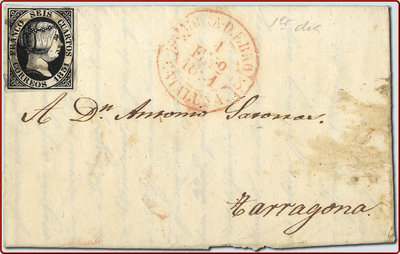 FRANCO SEIS CUARTOS
CORREOS 1851
1
1851
1er dia
A Dn Antonio
Tarragona.